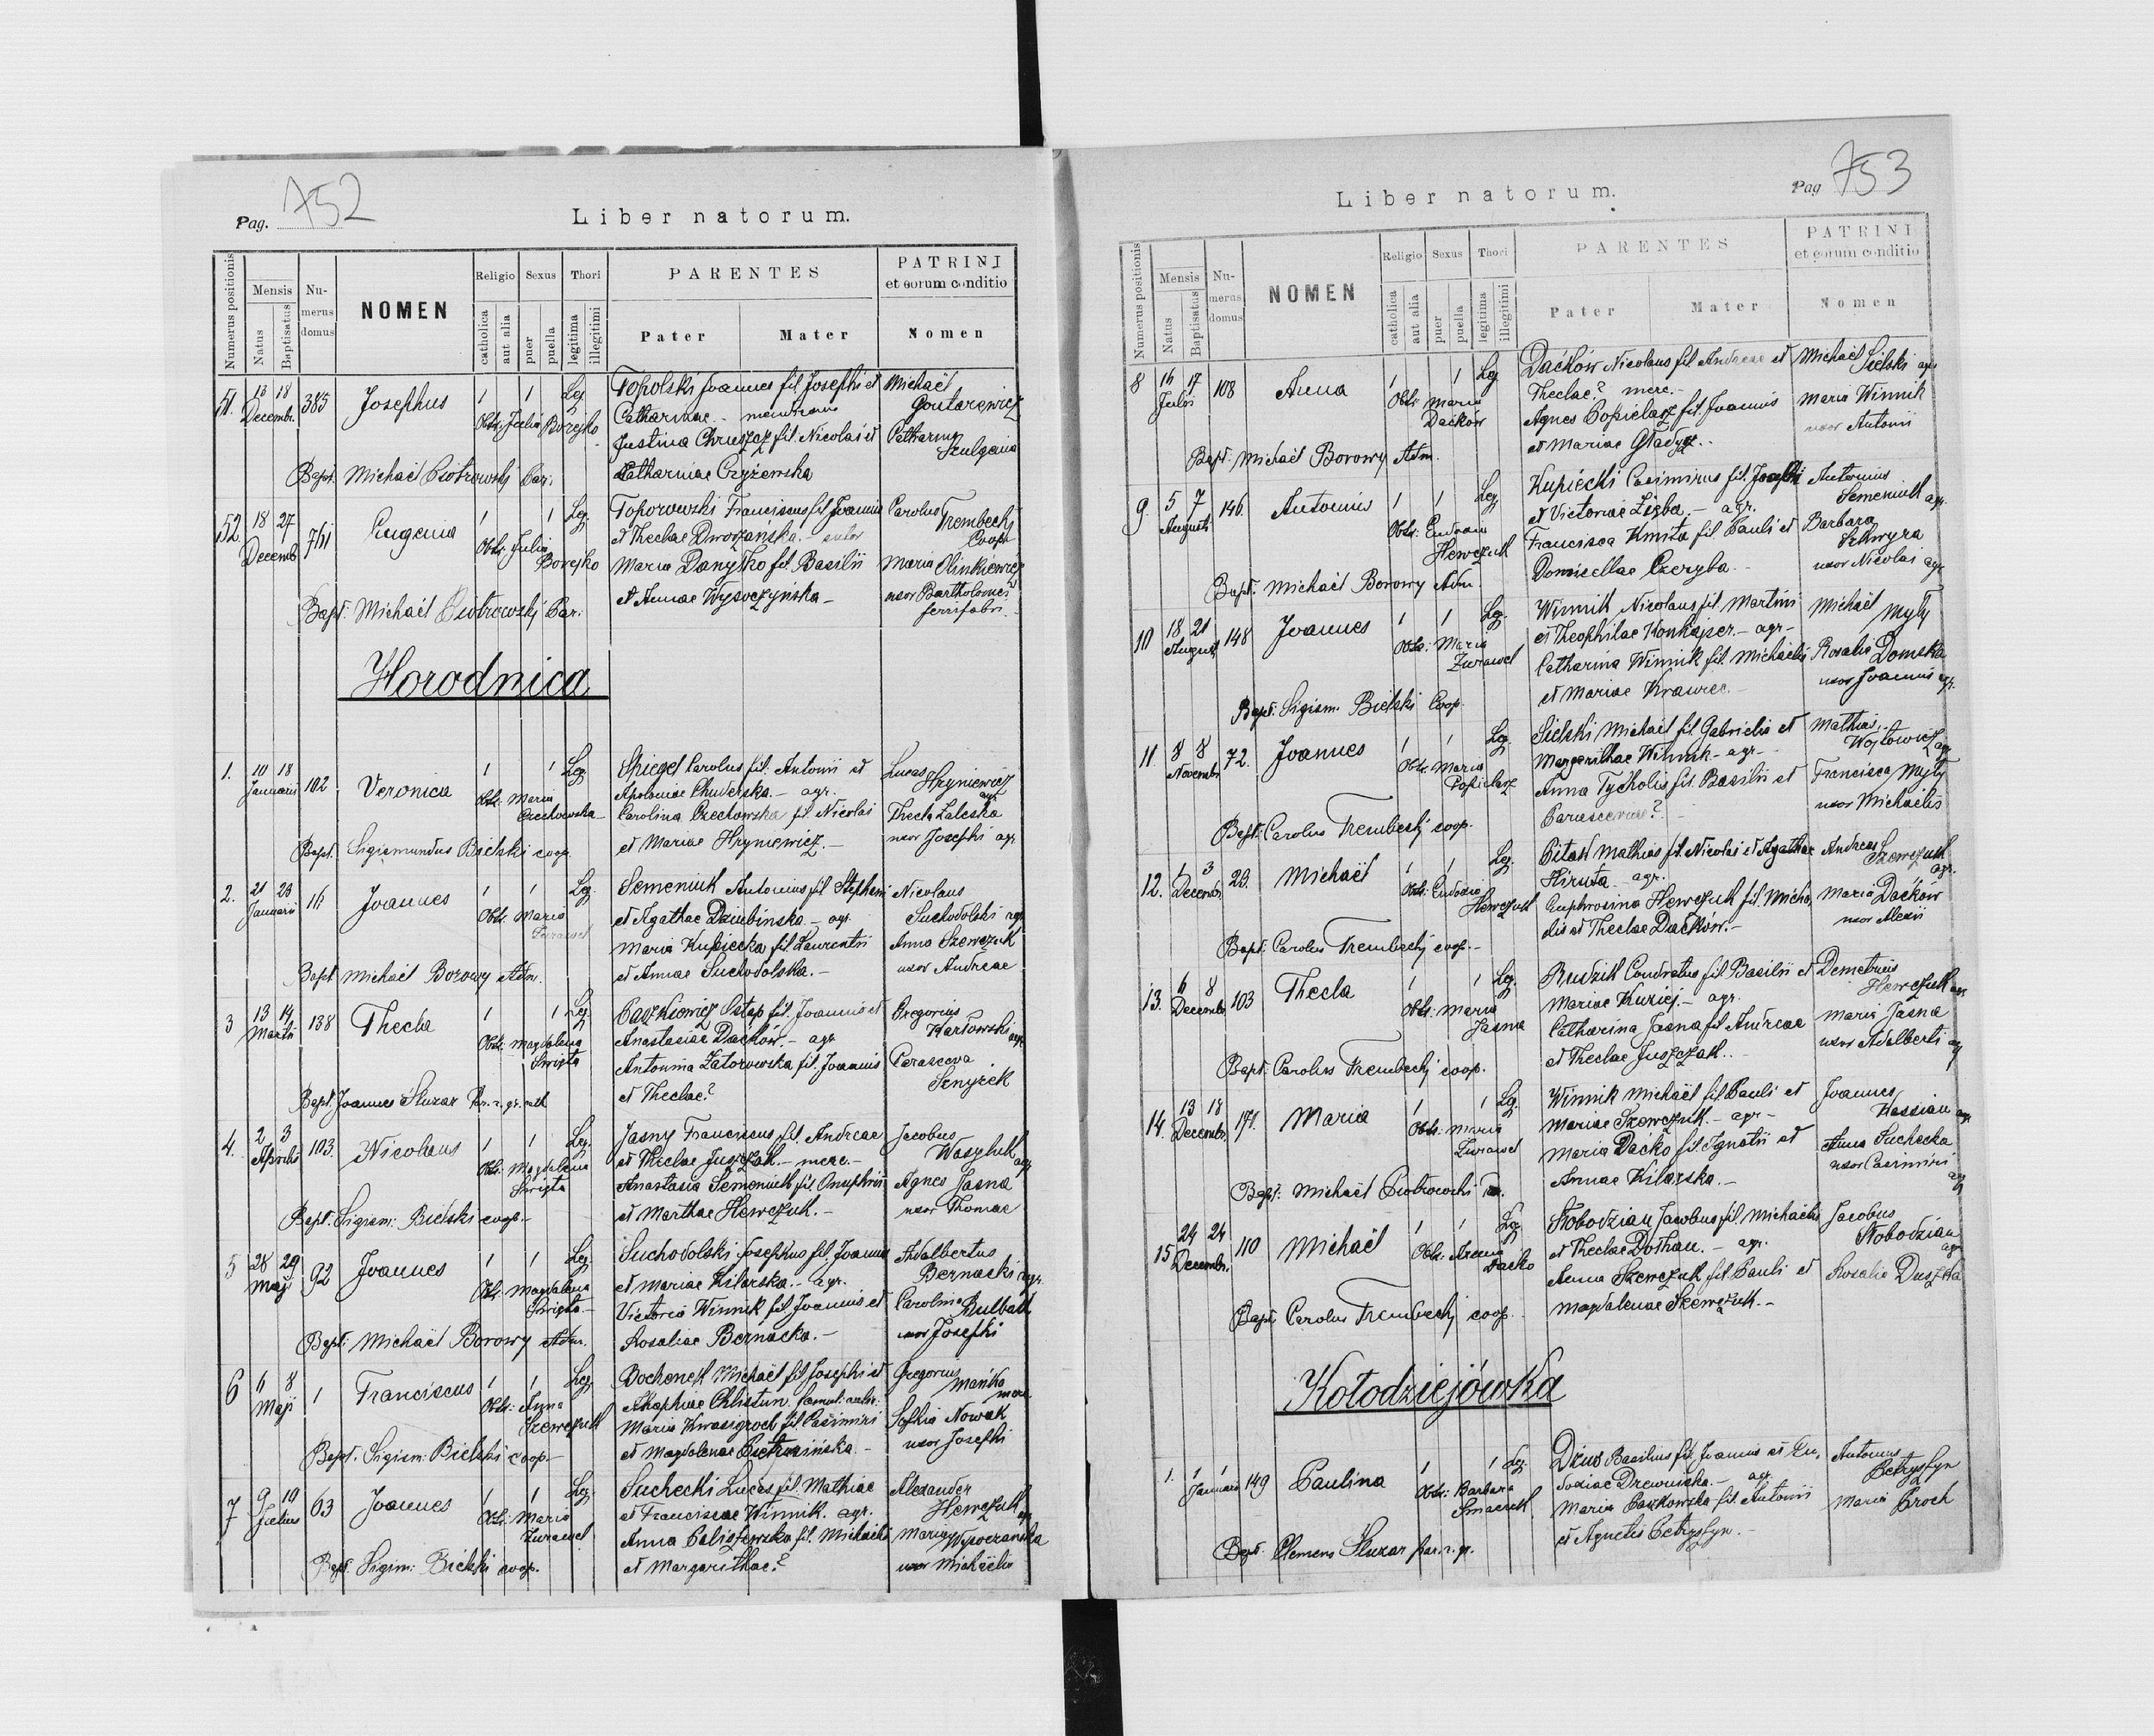 Pag. 752
Liber natorum.
Numerus positionis
Mensis
Natus
Baptisatus
Numerus domus
NOMEN
Religio
catholica
aut alia
Sexus
puer
puella
Thori
legitima
illegitimi
PARENTES
Pater
Mater
PATRINI
et eorum conditio
Nomen
51. 13 18 Decembr. 385 Josephus 1 1 Leg.
Obst. Julia Borejko
Topolski Joannes fil. Josephi et
Catharinae
Justina Chruszcz fil. Nicolai et
Catharinae Czyżewska
Michaël
Gontarewicz
Catharina
Szulgania
Bapt. Michaël Piotrowski Par.
52. 18 27 Decemb. 711 Eugenia 1 1 Leg.
Obst. Julia
Borejko
Toporowski Franciscus fil. Joannis
et Theclae Dworzańska. - sutor
Maria Danyłko fil. Basilii
et Annae Wysoczyńska -
Carolus
Trembecki
Coop
Maria Olinkiewicz
uxor Bartholomei
ferrifabri.
Bapt. Michaël Piotrowski Par.
Horodnica
1. 10 18 Januarii 102 Veronica 1 1 Leg.
Obst. Maria
Czechowska
Spiegel Carolus fil. Antonii et
Apoloniae Chuderska. - agr.
Carolina Czechowska fil. Nicolai
et Mariae Hryniewicz. -
Lucas
Hryniewicz
agr.
Thecla Zaleska
uxor Josephi agr.
Bapt. Sigismundus Bielski coop.
2. 21 23 Januarii 16 Joannes 1 1 Leg.
Obst. Maria
Żurawel
Semeniuk Antonius fil. Stephani
et Agathae Dziubińska - agr.
Maria Kupiecka fil. Laurentii
et Annae Suchodolska. -
Nicolaus
Suchodolski agr.
Anna Szewczuk
uxor Andreae
Bapt. Michaël Borowy Adm.
3 13 14 Martii 138 Thecla 1 1 Leg.
Obst. Magdalena
Święta
Paszkiewicz Ostap fil. Joannis et
Anastasiae Daćków. - agr
Antonina Zatorowska fil. Joannis
et Theclae?
Gregorius
Karłowski agr.
Parasceva
Sznyrek
Bapt. Joannes Sluzar Par. r. gr. cath
4. 2 3 Aprilis 103. Nicolaus 1 1 Leg.
Obst. Magdalena
Święta
Jasny Franciscus fil. Andreae
et Theclae Juszczak. - merc. -
Anastasia Semeniuk fil. Onuphrii
et Marthae Hewczuk. -
Jacobus
Wasyluk agr.
Agnes Jasna
uxor Thomae
Bapt. Sigism: Bielski coop. -
5 28 29 Maji 92 Joannes 1 1 Leg.
Obst. Magdalena
Święta -
Suchodolski Josephus fil. Joannis
et Mariae Kilarska. - agr.
Victoria Winnik fil. Joannis et
Rosaliae Bernacka. -
Adalbertus
Bernacki agr.
Carolina Bulbak
uxor Josephi
Bapt: Michaël Borowy Adm.
6 6 8 Maji 1 Franciscus 1 1 Leg.
Obst: Anna
Szewczuk
Bochenek Michaël fil. Josephi et
Agaphiae Chlistun.
Maria Kwasigroch fil. Casimiri
et Magdalenae Pietrasińska. -
Gregorius
Mańko
merc.
Sophia Nowak
uxor Josephi
Bapt. Sigism: Bielski coop. -
7 9 19 Julius 63 Joannes 1 1 Leg.
Obst: Maria
Żurawel
Suchecki Lucas fil. Mathiae
et Franciscae Winnik. agr.
Anna Caliszewska fil. Michaëlis
et Margarithae?
Alexander
Hewczuk agr.
Maria Wysoczańska
uxor Michaëlis
Bapt. Sigism: Bielski coop.
Pag 753
Liber natorum.
Numerus positionis
Mensis
Natus
Baptisatus
Numerus domus
NOMEN
Religio
catholica
aut alia
Sexus
puer
puella
Thori
legitima
illegitimi
PARENTES
Pater
Mater
PATRINI
et eorum conditio
Nomen
8 16 17 Julii 108 Anna 1 1 Leg
Obst: Maria
Daćków
Daćków Nicolaus fil. Andreae et
Theclae? merc. -
Agnes Popielarz fil. Joannis
et Mariae Gładysz. -
Michaël Sielski agr.
Maria Winnik
uxor Antonii
Bapt. Michaël Borowy Adm.
9. 5 7 Augusti 146. Antonius 1 1 Leg
Obst. Eudoxia
Hewczuk
Kupiecki Casimirus fil. Josephi
et Victoriae Zięba. - agr.
Francisca Kmita fil. Pauli et
Domicellae Czeryba. -
Antonius
Semeniuk agr.
Barbara
Sehwyra
uxor Nicolai agr
Bapt. Michaël Borowy Adm.
10 18 21 Augusti 148 Joannes 1 1 Leg.
Obst: Maria
Żurawel
Winnik Nicolaus fil. Martini
et Theophilae Konkajser. - agr -
Catharina Winnik fil. Michaëlis
et Mariae Krawiec. -
Michaël Myły
Rosalia Domska
uxor Joannis agr.
Bapt. Sigism. Bielski Coop.
11 8 8 Novemb. 72. Joannes 1 1 Leg.
Obst. Maria
Popielarz
Sielski Michaël fil. Gabrielis et
Margarithae Winnik - agr. -
Anna Tycholis fil. Basilii et
Parascevae? -
Mathias
Wojtowicz agr.
Francisca Myły
uxor Michaëlis
Bapt. Carolus Trembecki coop.
12. 1 3 Decembr. 23. Michaël 1 1 Leg.
Obst. Eudoxia
Hewczuk
Pitak Mathias fil. Nicolai et Agathae
Hiruta. agr.
Euphrosina Hewczuk fil. Michaë,
lis et Theclae Daćków. -
Andreas Szewczuk
agr.
Maria Daćków
uxor Alexii
Bapt. Carolus Trembecki coop. -
13. 6 8 Decemb. 103 Thecla 1 1 Leg.
Obst: Maria
Jasna
Rudzik Condratus fil. Basilii et
Mariae Kuziej. - agr.
Catharina Jasna fil Andreae
et Theclae Juszczak. -
Demetrius
Hewczuk agr
Maria Jasna
uxor Adalberti agr
Bapt. Carolus Trembecki coop.
14. 13 18 Decembr. 171. Maria 1 1 Leg.
Obst: Maria
Żurawel
Winnik Michaël fil. Pauli et
Mariae Szewczuk. - agr -
Maria Daćko fil. Ignatii et
Annae Kilarska. -
Joannes
Kassian agr
Anna Suchecka
uxor Casimiri
agr
Bapt: Michaël Piotrowski
15 24 24 Decembr. 110 Michaël 1 1 Leg
Obst: Anna
Daćko
Słobodzian Jacobus fil. Michaëlis
et Theclae Dorhan. - agr.
Anna Szewczuk fil. Pauli et
Magdalenae Szewczuk. -
Jacobus
Słobodzian
agr
Rosalia Duszka
Bapt Carolus Trembecki coop.
Kołodziejówka
1. 1 1 Januarii 149 Paulina 1 1 Leg.
Obst: Barbara
Smaczuk
Dziuś Basilius fil. Joannis et Eu,
doxiae Drewnicka. - agr.
Maria Paszkowska fil. Antonii
et Agnetis Petryszyn. -
Antonius
Petryszyn
Maria Groch
Bapt. Clemens Sluzar par. r. gr.